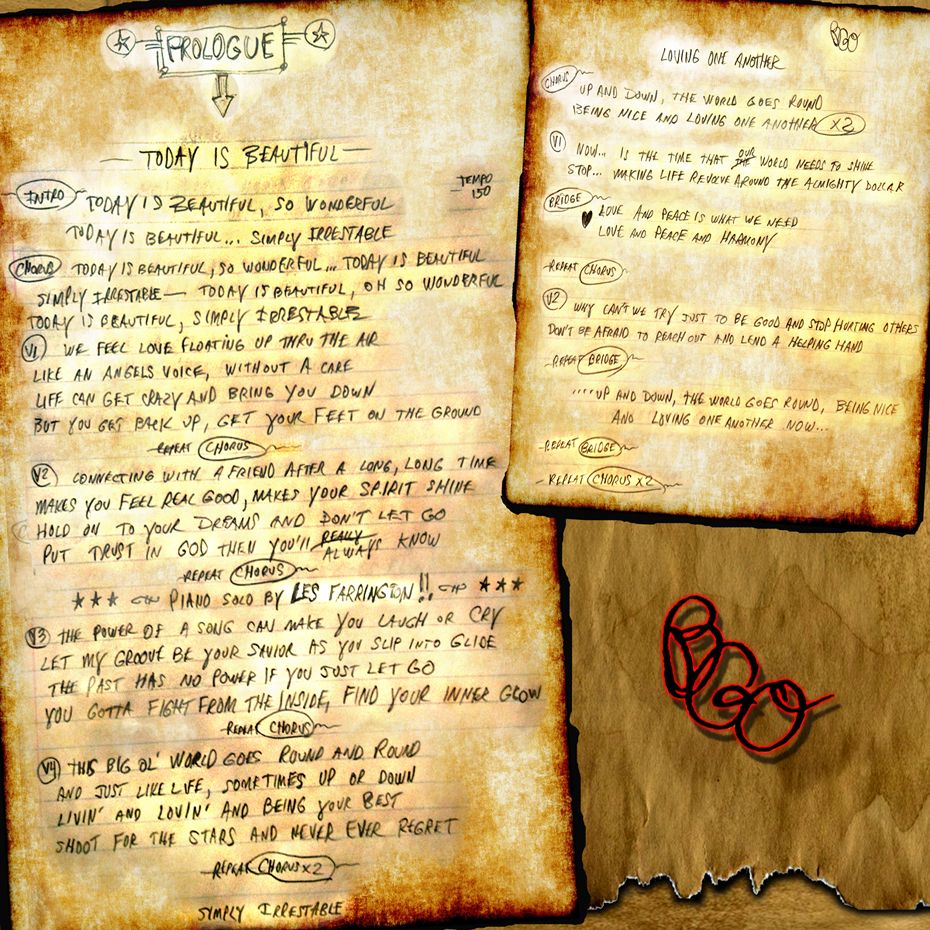 PROLOGUE
TODAY IS BEAUTIFUL
TEMPO
150
INTRO TODAY IS BEAUTIFUL, SO WONDERFUL
TODAY IS BEAUTIFUL... SIMPLY IRRESTABLE
CHORUS TODAY IS BEAUTIFUL, SO WONDERFUL... TODAY IS BEAUTIFUL
SIMPLY IRRESTABLE — TODAY IS BEAUTIFUL, OH SO WONDERFUL
TODAY IS BEAUTIFUL, SIMPLY IRRESTABLE
V1 WE FEEL LOVE FLOATING UP THRU THE AIR
LIKE AN ANGELS VOICE, WITHOUT A CARE
LIFE CAN GET CRAZY AND BRING YOU DOWN
BUT YOU GET BACK UP, GET YOUR FEET ON THE GROUND
REPEAT CHORUS
V2 CONNECTING WITH A FRIEND AFTER A LONG, LONG TIME
MAKES YOU FEEL REAL GOOD, MAKES YOUR SPIRIT SHINE
HOLD ON TO YOUR DREAMS AND DON'T LET GO
PUT TRUST IN GOD THEN YOU'LL REALLY ALWAYS KNOW
REPEAT CHORUS
★★★ PIANO SOLO BY LES FARRINGTON!! ★★★
V3 THE POWER OF A SONG CAN MAKE YOU LAUGH OR CRY
LET MY GROOVE BE YOUR SAVIOR AS YOU SLIP INTO GLIDE
THE PAST HAS NO POWER IF YOU JUST LET GO
YOU GOTTA FIGHT FROM THE INSIDE, FIND YOUR INNER GLOW
REPEAT CHORUS
V4 THIS BIG OL' WORLD GOES ROUND AND ROUND
AND JUST LIKE LIFE, SOMETIMES UP OR DOWN
LIVIN' AND LOVIN' AND BEING YOUR BEST
SHOOT FOR THE STARS AND NEVER EVER REGRET
REPEAT CHORUS X2
SIMPLY IRRESTABLE
BGO
LOVING ONE ANOTHER
CHORUS UP AND DOWN, THE WORLD GOES ROUND
BEING NICE AND LOVING ONE ANOTHER X2
V1 NOW... IS THE TIME THAT THE OUR WORLD NEEDS TO SHINE
STOP... MAKING LIFE REVOLVE AROUND THE ALMIGHTY DOLLAR
BRIDGE ♥ LOVE AND PEACE IS WHAT WE NEED
LOVE AND PEACE AND HARMONY
REPEAT CHORUS
V2 WHY CAN'T WE TRY JUST TO BE GOOD AND STOP HURTING OTHERS
DON'T BE AFRAID TO REACH OUT AND LEND A HELPING HAND
REPEAT BRIDGE
....UP AND DOWN, THE WORLD GOES ROUND, BEING NICE
AND LOVING ONE ANOTHER NOW...
REPEAT BRIDGE
REPEAT CHORUS X2
BGO